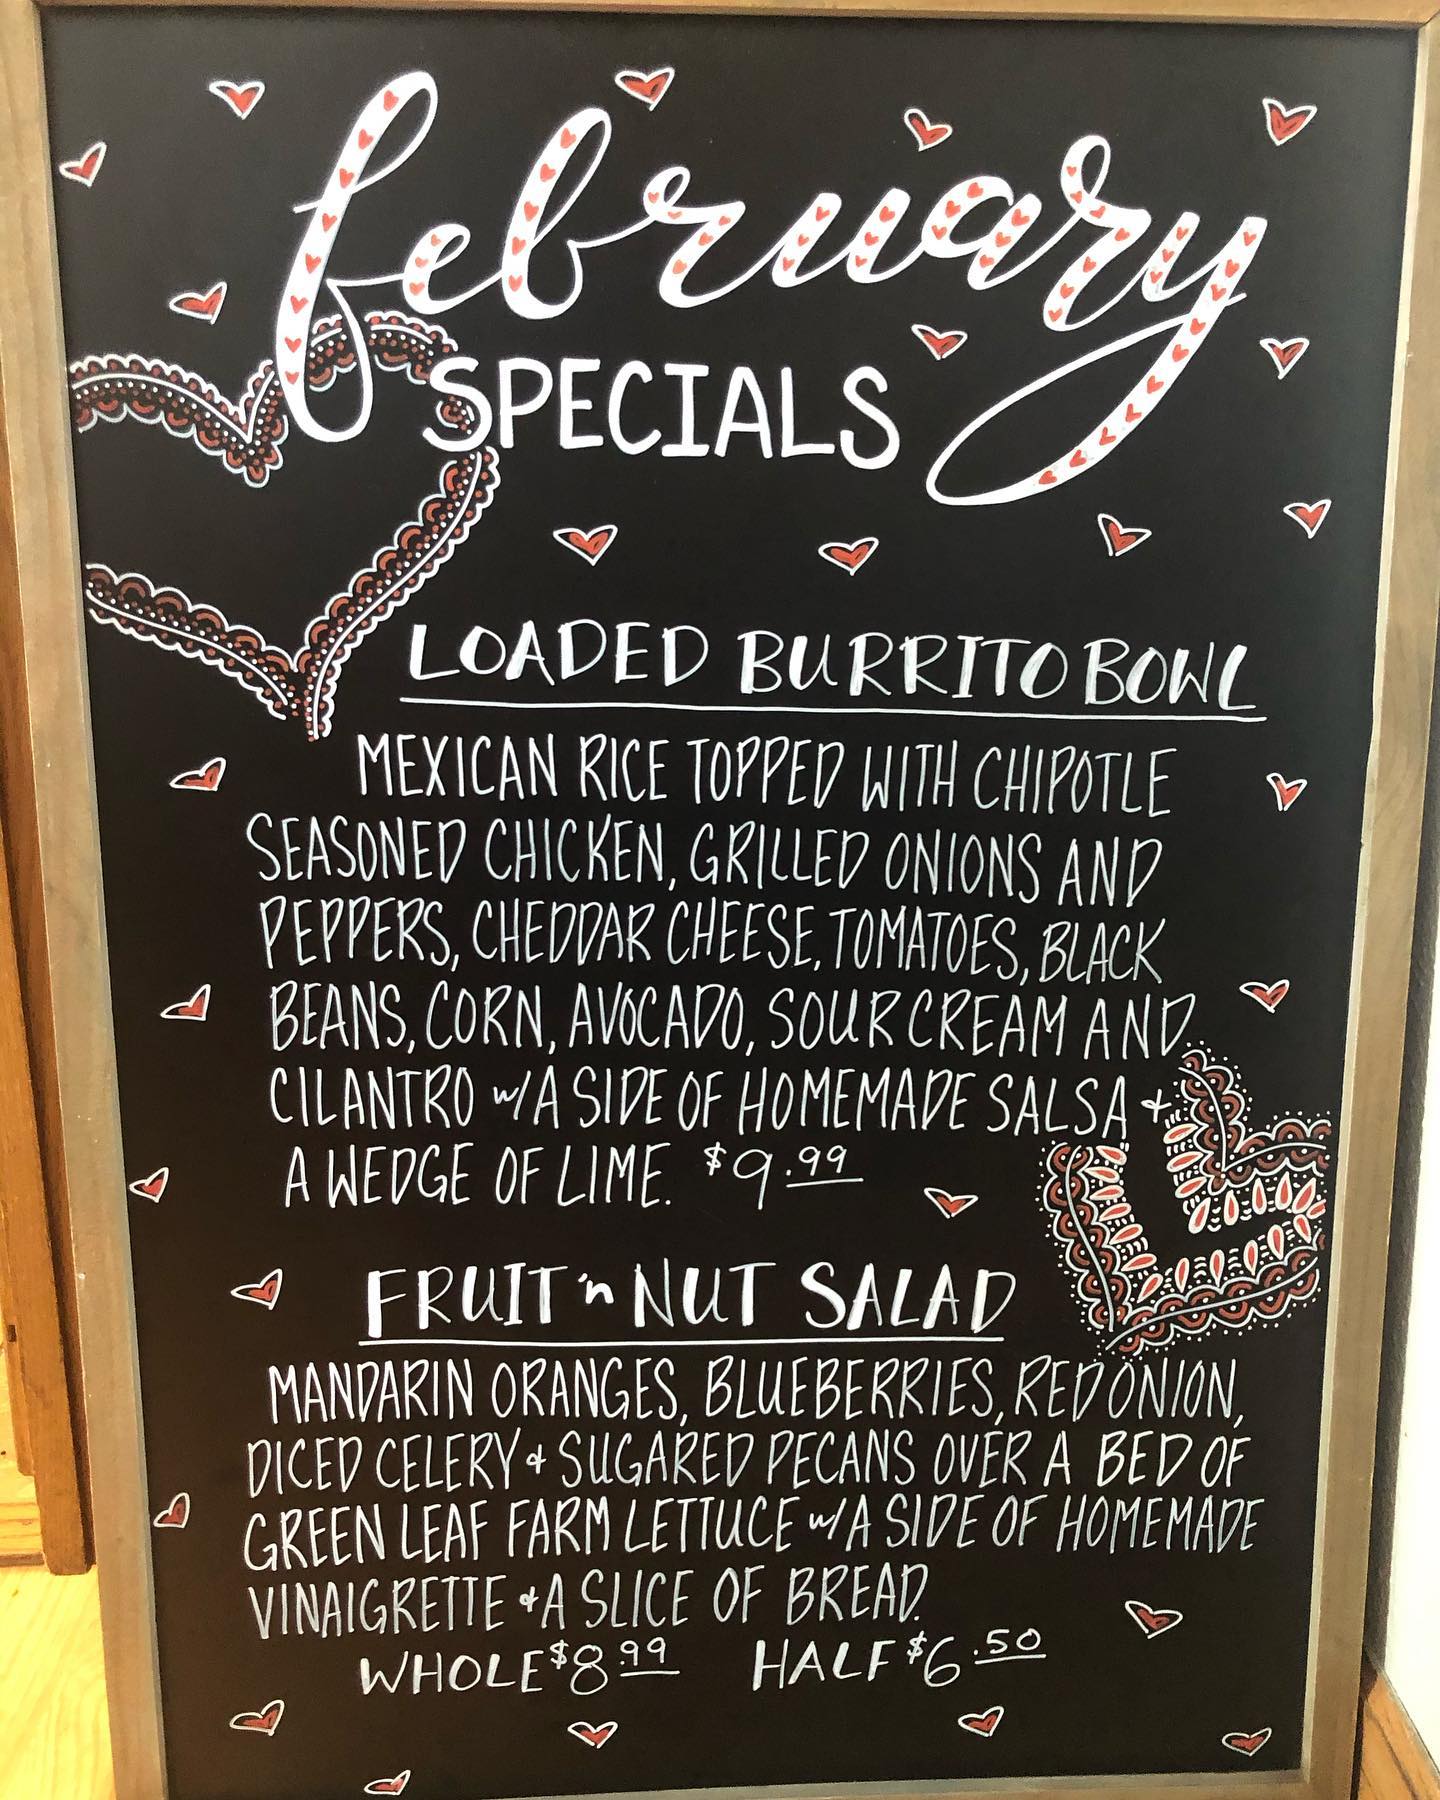 february
SPECIALS
LOADED BURRITO BOWL
MEXICAN RICE TOPPED WITH CHIPOTLE
SEASONED CHICKEN, GRILLED ONIONS AND
PEPPERS, CHEDDAR CHEESE, TOMATOES, BLACK
BEANS, CORN, AVOCADO, SOUR CREAM AND
CILANTRO w/A SIDE OF HOMEMADE SALSA &
A WEDGE OF LIME. $9.99
FRUIT 'n NUT SALAD
MANDARIN ORANGES, BLUEBERRIES, RED ONION,
DICED CELERY & SUGARED PECANS OVER A BED OF
GREEN LEAF FARM LETTUCE w/A SIDE OF HOMEMADE
VINAIGRETTE & A SLICE OF BREAD.
WHOLE $8.99 HALF $6.50